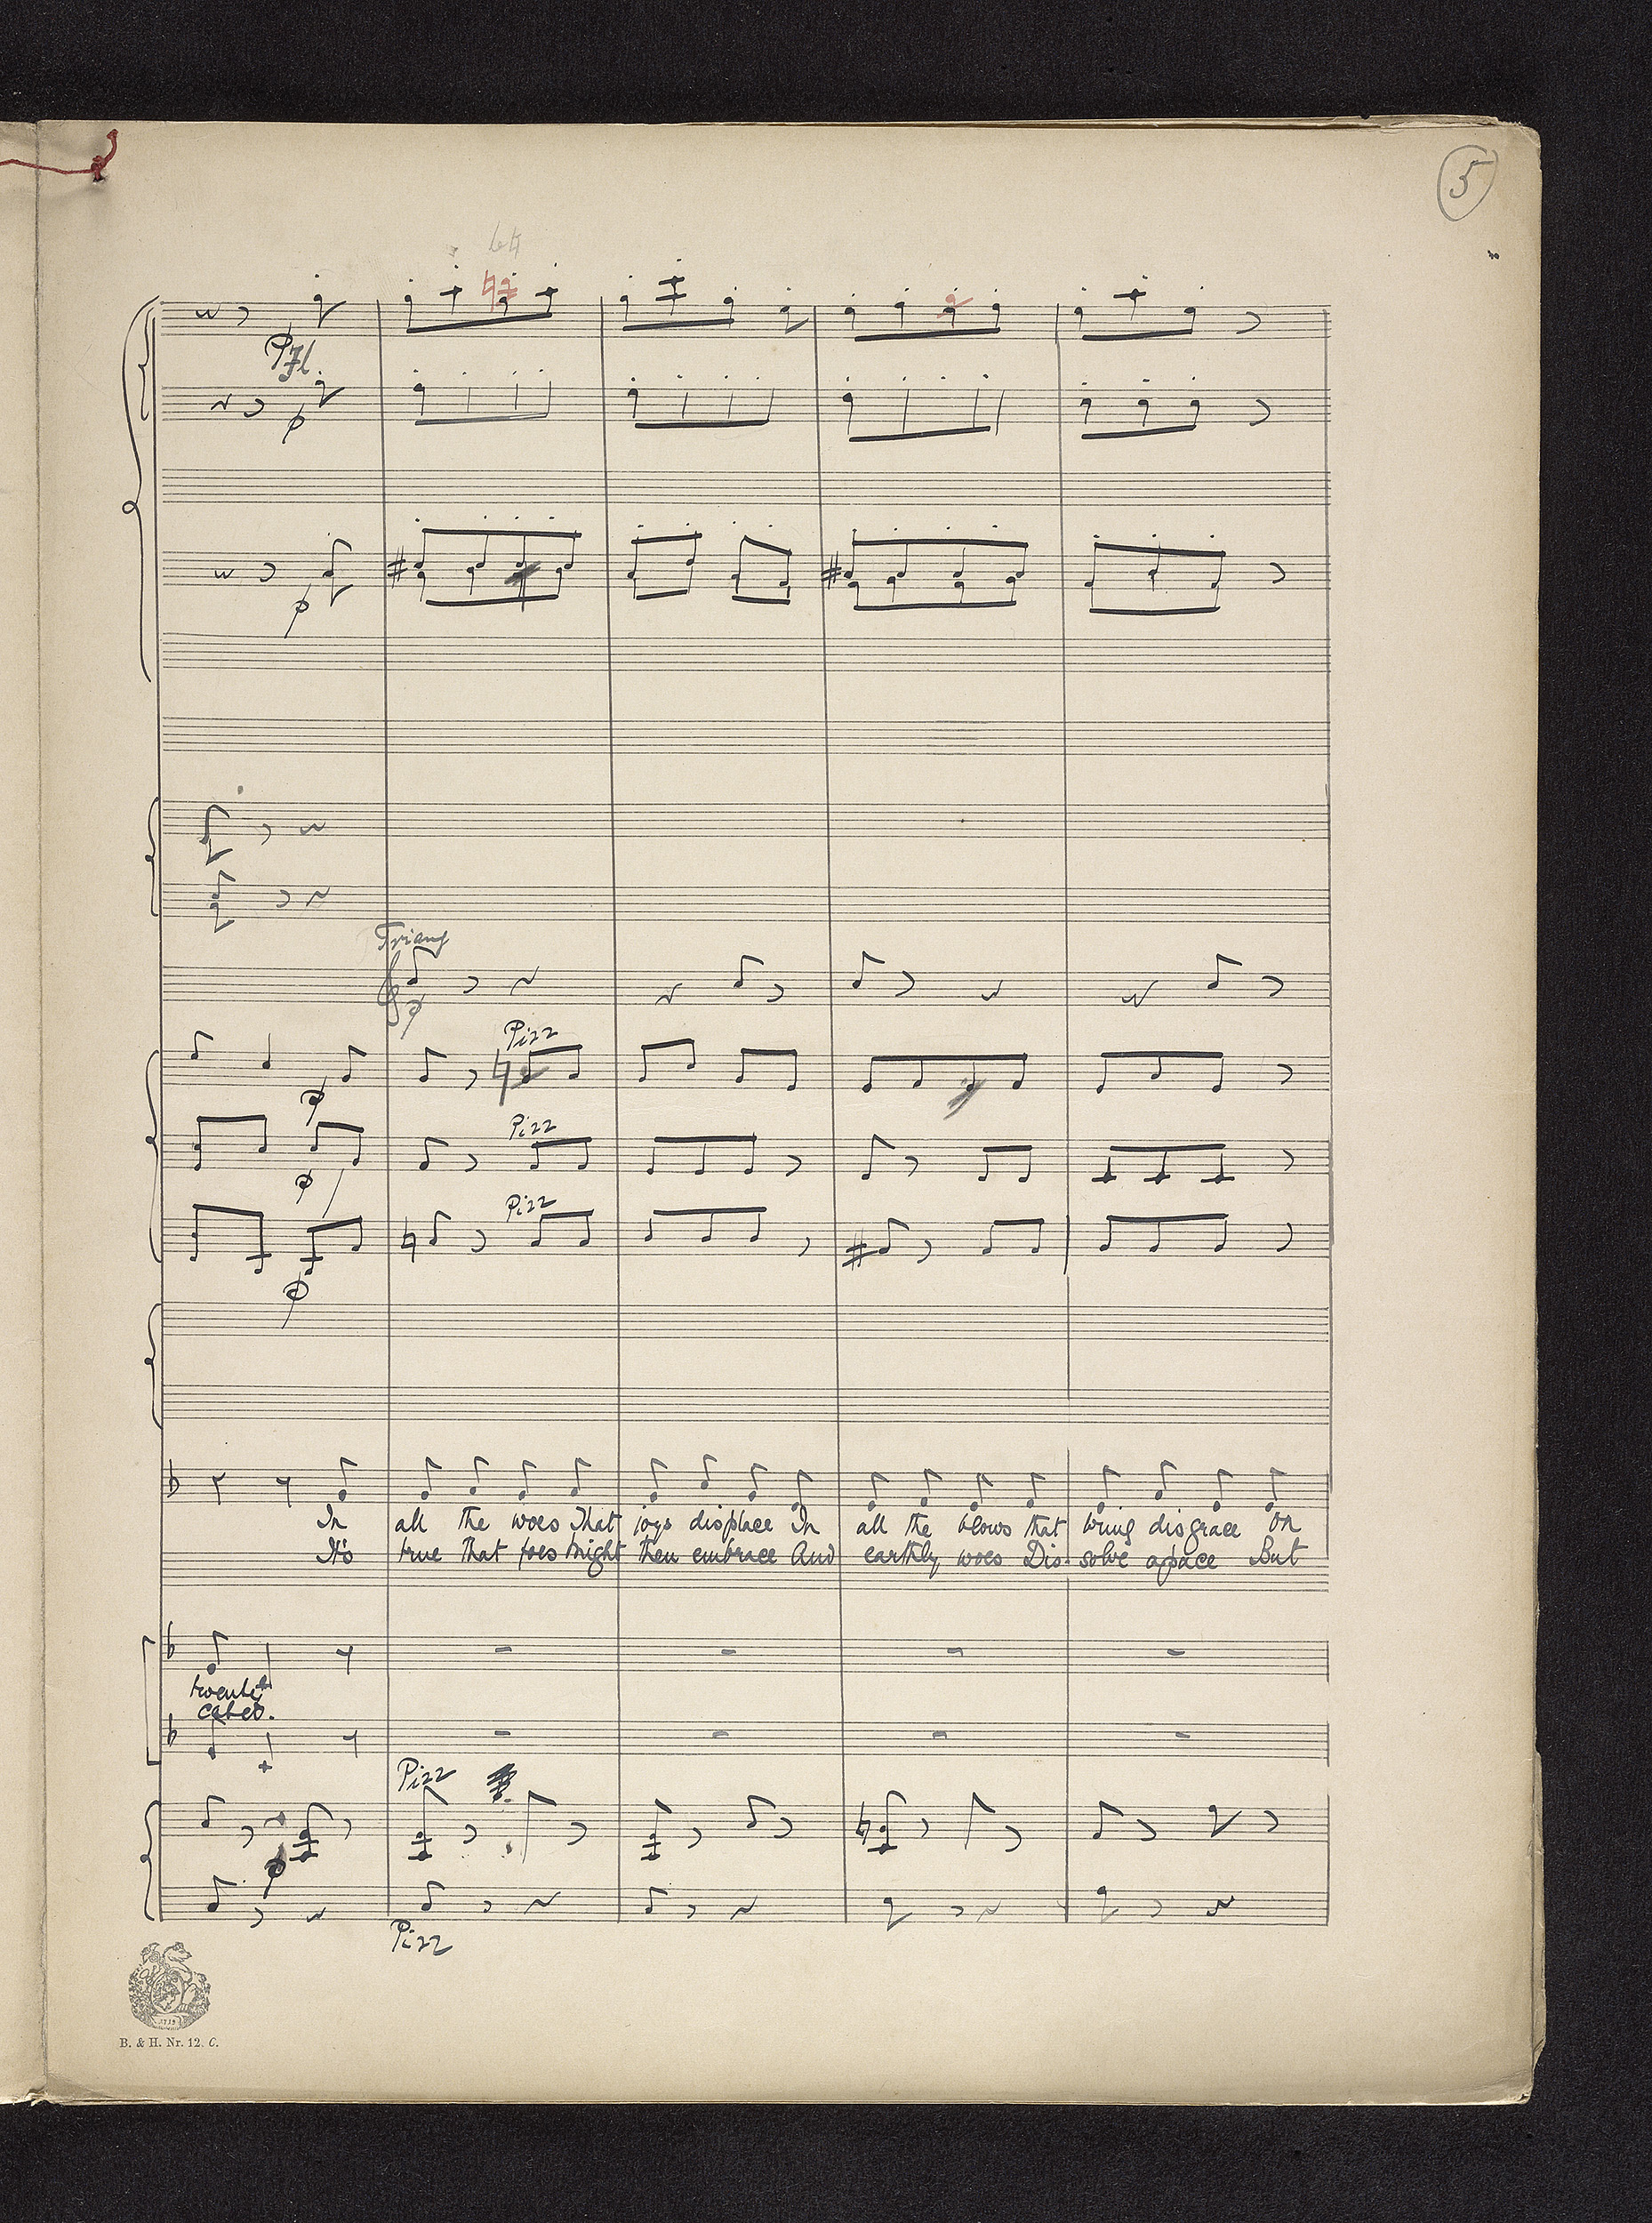 5
p Fl.
p
p
Triang
p
Pizz
p
Pizz
p
Pizz
p
In all the woes That joys displace In all the blows that bring disgrace On
It's true That foes might then embrace And earthly woes Dis- solve apace But
cates.
Pizz
p
Pizz
1719
B. & H. Nr. 12. C.